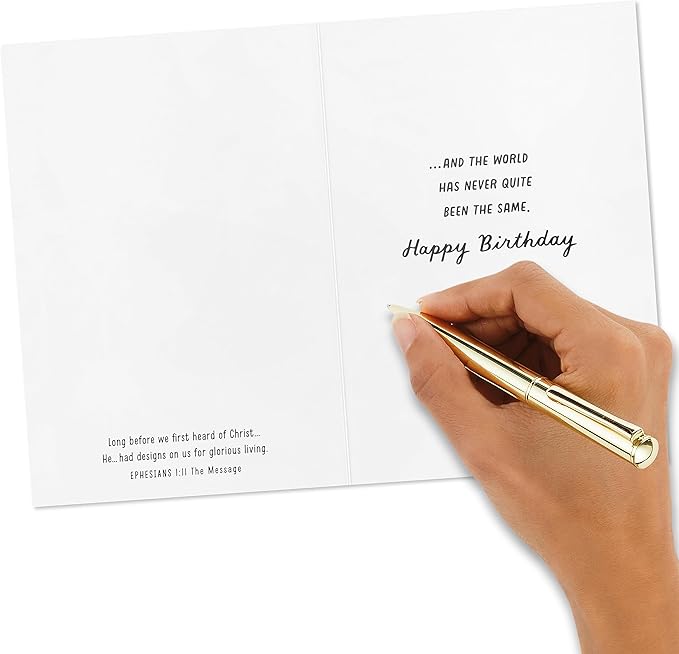 ...AND THE WORLD
HAS NEVER QUITE
BEEN THE SAME.
Happy Birthday
Long before we first heard of Christ...
He...had designs on us for glorious living.
EPHESIANS 1:11 The Message